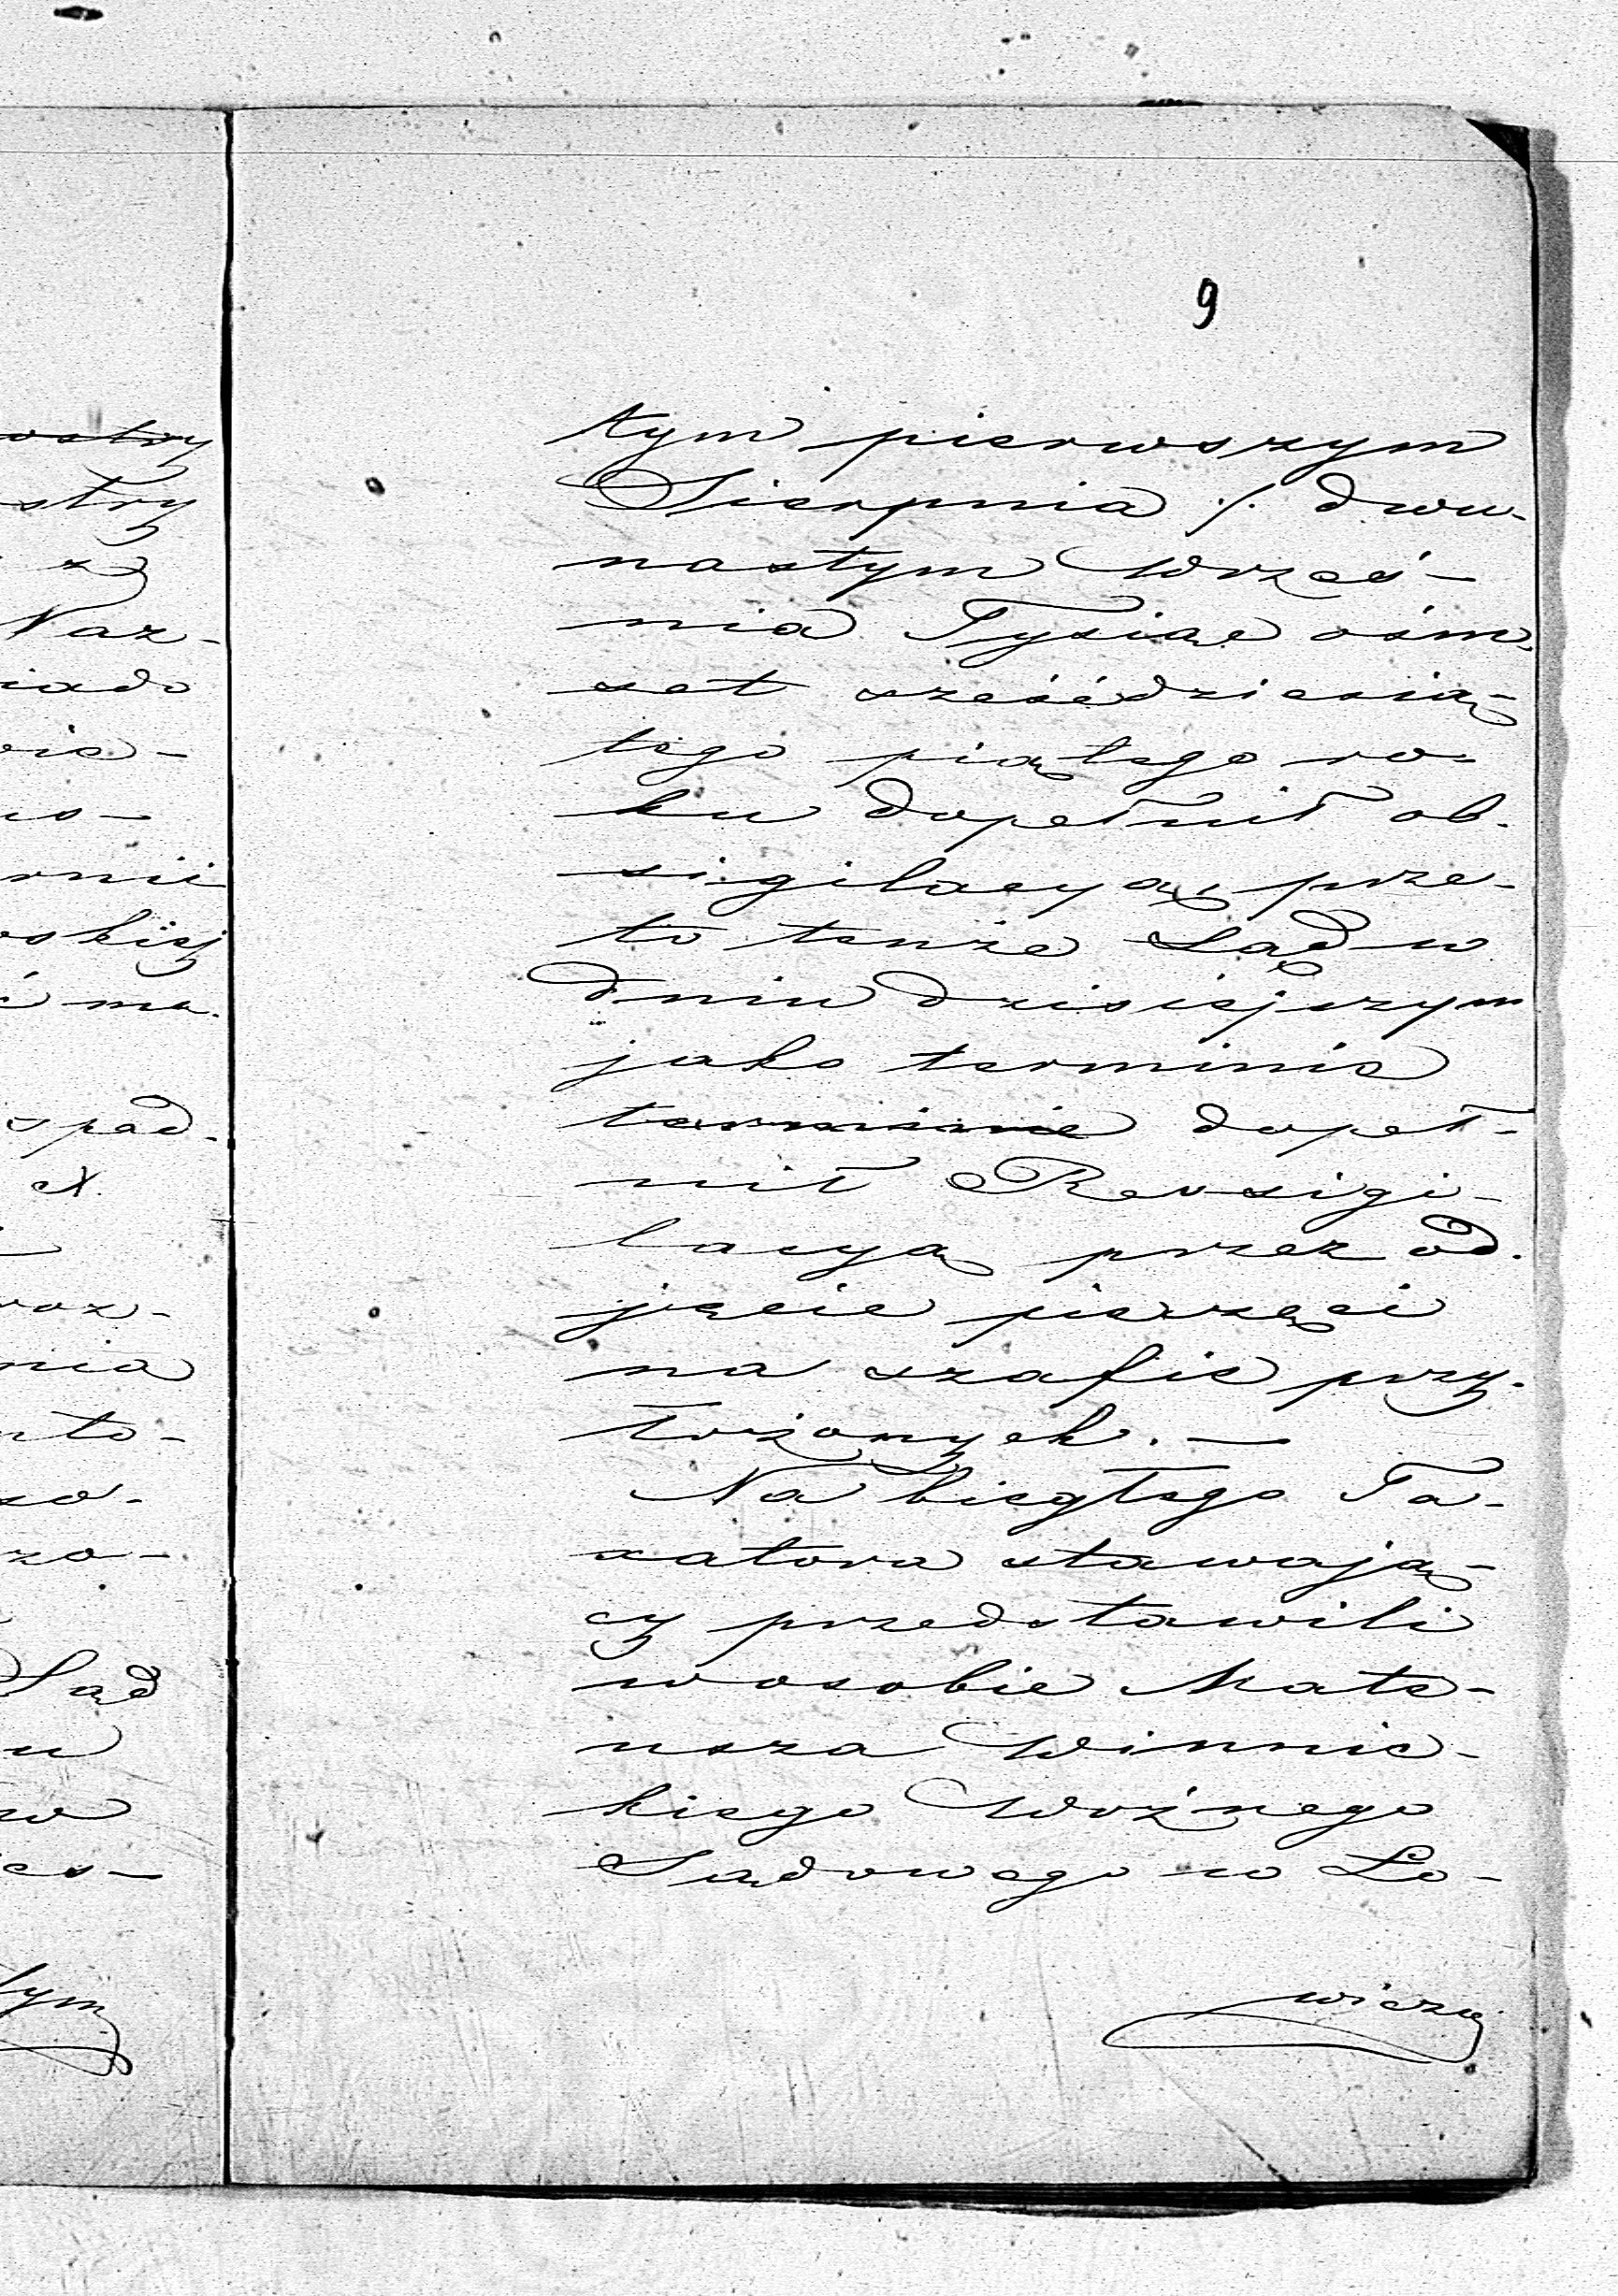 9
tym pierwszym
Sierpnia /. dwu-
nastym Wrześ-
nia Tysiąc ośm-
set sześćdziesią-
tego piątego ro-
ku dopełnił ob-
sigilacyą, prze-
to tenże Sąd w
dniu dzisiejszym
jako terminie
terminie dopeł-
nił Rewsigi-
lacyą przez od-
jęcie pieczęci
na szafie przy-
łożonych. —
Na biegłego Ta-
xatora stawają-
cy przedstawili
w osobie Mate-
usza Winnic-
kiego Woźnego
Sądowego w Ło-
wiczu